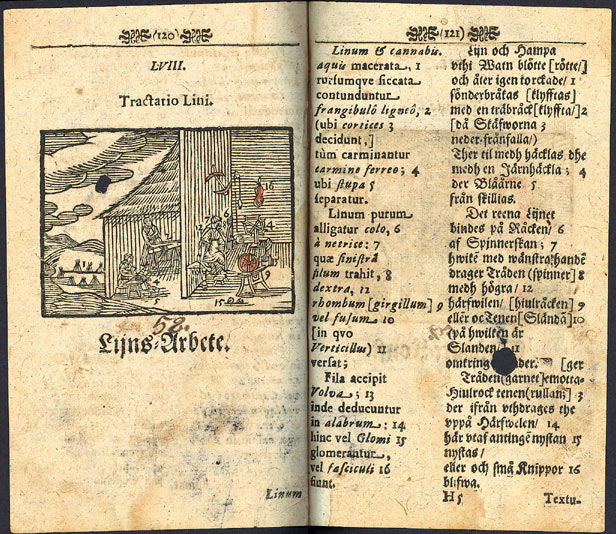 (120)
LVIII.
Tractatio Lini.
52.
Lijns-Arbete.
Linum
(121)
Linum & cannabis.
aquis macerata, 1
rursumqve siccata
contunduntur
frangibulô ligneô, 2
(ubi cortices 3
decidunt,]
tùm carminantur
carmine ferreo; 4
ubi stupa 5
separatur.
Linum purum
alligatur colo, 6
à netrice: 7
quæ sinistrâ
filum trahit, 8
dextra, 12
rhombum [girgillum] 9
vel fusum 10
[in qvo
Verticillus) 11
versat;
Fila accipit
Volva; 13
inde deducuntur
in alabrum: 14
hinc vel Glomi 15
glomerantur,
vel fasciculi 16
fiunt.
Lijn och Hampa
vthi Watn blötte [rötte/]
och åter igen torckade/ 1
sönderbråkas [klyfftas]
med en träbråck [klyffta/] 2
[då Skäfworna 3
neder-fränfalla/)
Ther til medh häcklas dhe
medh en Järnhäckla; 4
der Blåårne 5
från skillias.
Det reena Lijnet
bindes på Räcken/ 6
af Spinnerskan; 7
hwilkē med wänstra handē
drager Tråden (spinner] 8
medh högra/ 12
härfwilen/ [hiulräcken] 9
eller oc Tenen [Sländā] 10
(på hwilken är
Slanden/ 11
omkring der. [ger
Tråden (garnet) emotta-
Hiulrock tenen (rullan;] 3
der ifrån vthdrages the
vppå Härfwelen/ 14
här vtaf antingē nystan 15
nystas/
eller och små Knippor 16
blifwa.
H 5
Textu-